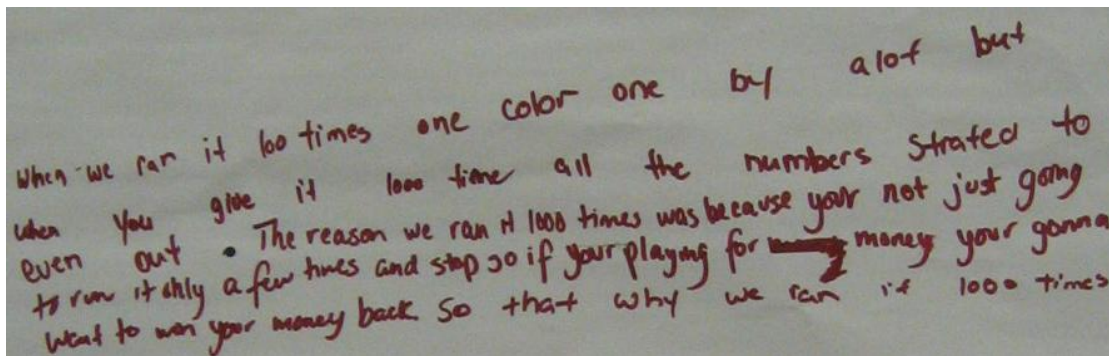 When we ran it 100 times one color one by alot but
when you give it 1000 time all the numbers strated to
even out. The reason we ran it 1000 times was because your not just going
to run it only a few times and stop so if your playing for money your gonna
want to won your money back so that why we ran it 1000 times